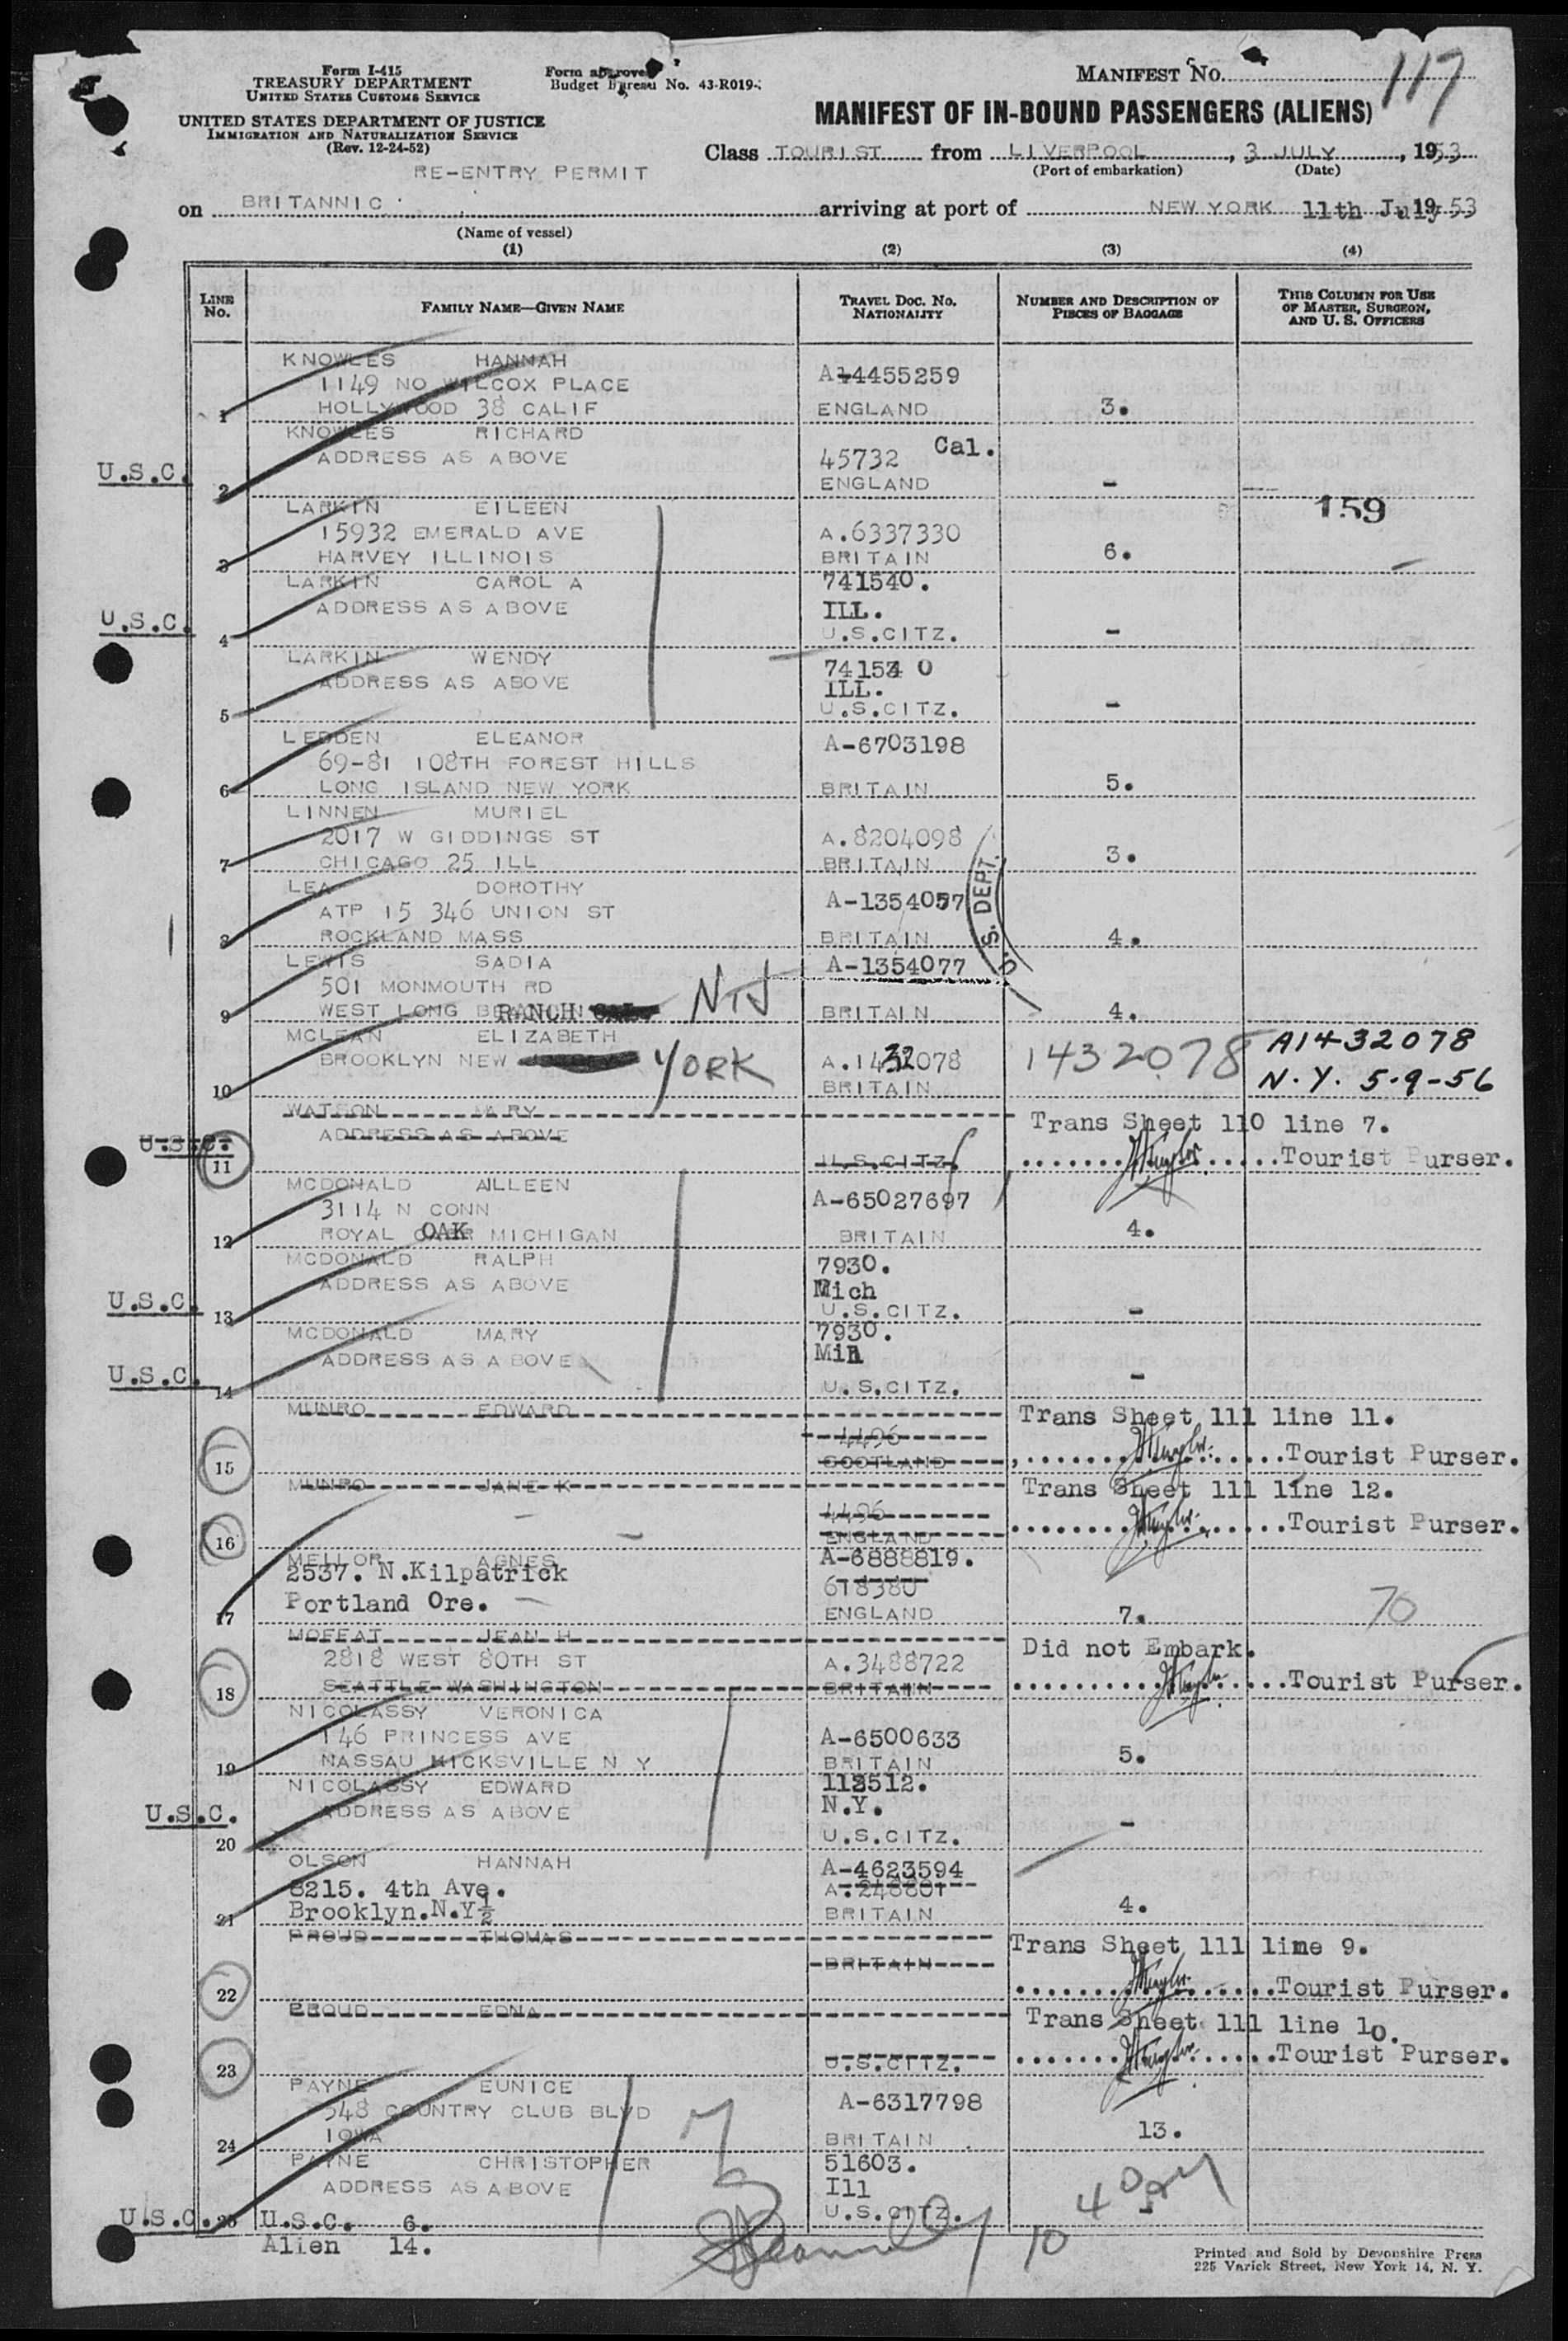 Form I-415
TREASURY DEPARTMENT
UNITED STATES CUSTOMS SERVICE
UNITED STATES DEPARTMENT OF JUSTICE
IMMIGRATION AND NATURALIZATION SERVICE
(Rev. 12-24-52)
Form approve
Budget Bureau No. 43-R019-
MANIFEST NO. 117
MANIFEST OF IN-BOUND PASSENGERS (ALIENS)
Class TOURIST from LIVERPOOL, 3 JULY, 1953
(Port of embarkation) (Date)
RE-ENTRY PERMIT
on BRITANNIC arriving at port of NEW YORK 11th July 1953
(Name of vessel)
(1) (2) (3) (4)
LINE No. FAMILY NAME—GIVEN NAME TRAVEL DOC. NO. NATIONALITY NUMBER AND DESCRIPTION OF PIECES OF BAGGAGE THIS COLUMN FOR USE OF MASTER, SURGEON, AND U. S. OFFICERS
KNOWLES HANNAH
1149 NO WILCOX PLACE A14455259
1 HOLLYWOOD 38 CALIF ENGLAND 3.
KNOWLES RICHARD
ADDRESS AS ABOVE 45732 Cal.
U.S.C. 2 ENGLAND -
159
LARKIN EILEEN
15932 EMERALD AVE A.6337330
3 HARVEY ILLINOIS BRITAIN 6.
LARKIN CAROL A 741540.
ADDRESS AS ABOVE ILL.
U.S.C. 4 U.S.CITZ. -
LARKIN WENDY 741534 0
ADDRESS AS ABOVE ILL.
5 U.S.CITZ. -
LEDDEN ELEANOR A-6703198
69-81 108TH FOREST HILLS
6 LONG ISLAND NEW YORK BRITAIN 5.
LINNEN MURIEL
2017 W GIDDINGS ST A.8204098
7 CHICAGO 25 ILL BRITAIN 3.
LEA DOROTHY A-1354057
ATP 15 346 UNION ST
8 ROCKLAND MASS BRITAIN 4.
S. DEPT.
LEWIS SADIA A-1354077
501 MONMOUTH RD
9 WEST LONG BRANCH NJ BRITAIN 4.
MCLEAN ELIZABETH
BROOKLYN NEW YORK A.1432078 1432078 A1432078
10 BRITAIN N.Y. 5-9-56
WATSON MARY Trans Sheet 110 line 7.
ADDRESS AS ABOVE
U.S.C. 11 U.S.CITZ. Tourist Purser.
MCDONALD AILLEEN A-65027697
3114 N CONN
12 ROYAL OAK MICHIGAN BRITAIN 4.
MCDONALD RALPH 7930.
ADDRESS AS ABOVE Mich
U.S.C. 13 U.S.CITZ. -
MCDONALD MARY 7930.
ADDRESS AS ABOVE
U.S.C. 14 U.S.CITZ. -
MUNRO EDWARD Trans Sheet 111 line 11.
4496
15 SCOTLAND Tourist Purser.
MUNRO JANE K Trans Sheet 111 line 12.
4496
16 ENGLAND Tourist Purser.
MELLOR AGNES A-6888819.
2537. N.Kilpatrick 618380
17 Portland Ore. ENGLAND 7. 70
MOFFAT JEAN H Did not Embark.
2818 WEST 80TH ST A.3488722
18 SEATTLE WASHINGTON BRITAIN Tourist Purser.
NICOLASSY VERONICA
146 PRINCESS AVE A-6500633
19 NASSAU HICKSVILLE N Y BRITAIN 5.
NICOLASSY EDWARD 112512.
U.S.C. ADDRESS AS ABOVE N.Y.
20 U.S.CITZ. -
OLSON HANNAH A-4623594
8215. 4th Ave. A.248801
21 Brooklyn.N.Y BRITAIN 4.
PROUD THOMAS Trans Sheet 111 line 9.
BRITAIN
22 Tourist Purser.
PROUD EDNA Trans Sheet 111 line 10.
23 U.S.CITZ. Tourist Purser.
PAYNE EUNICE A-6317798
548 COUNTRY CLUB BLVD
24 IOWA BRITAIN 13.
PAYNE CHRISTOPHER 51603.
ADDRESS AS ABOVE Ill
U.S.C. 25 U.S.CITZ. -
U.S.C. 6.
Alien 14.
10
Printed and Sold by Devonshire Press
225 Varick Street, New York 14, N. Y.